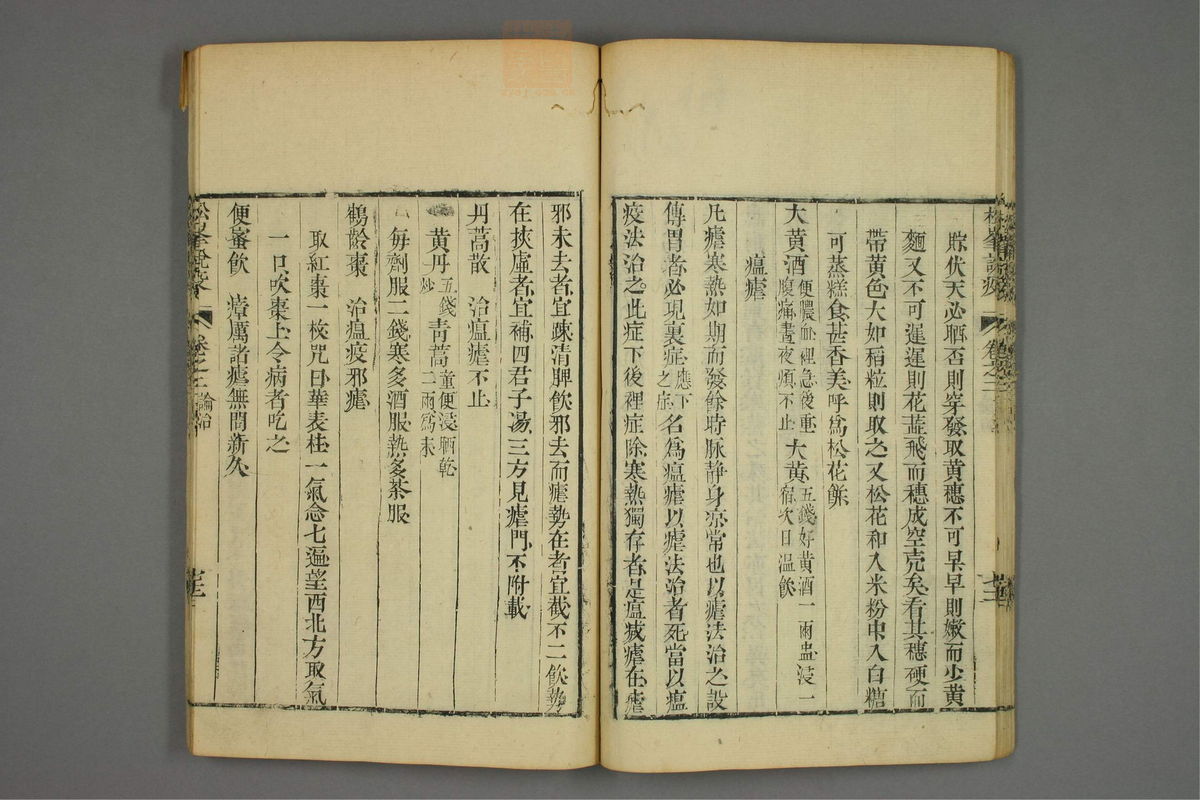 貯伏天必晒否則穿發取黃穗不可早早則嫩而少黃
麵又不可遲遲則花蕋飛而穗成空壳矣看其穗硬而
帶黃色大如稻粒則取之又松花和入米粉中入白糖
可蒸糕食甚香美呼爲松花餅
大黃酒 便膿血裡急後重腹痛晝夜頻不止 大黃 五錢好黃酒一兩盅浸一宿次日温飲
瘟瘧
凡瘧寒熱如期而發餘時脉静身凉常也以瘧法治之設
傳胃者必現裏症 應下之症 名爲瘟瘧以瘧法治者死當以瘟
疫法治之此症下後裡症除寒熱獨存者是瘟減瘧在瘧
松峯說疫 卷之二
邪未去者宜疎清脾飲邪去而瘧勢在者宜截不二飲勢
在挾虛者宜補四君子湯三方見瘧門不附載
丹蒿散 治瘟瘧不止
黃丹 五錢炒 靑蒿 童便浸晒乾二兩爲末
每劑服二錢寒多酒服熱多茶服
鶴齡棗 治瘟疫邪瘧
取紅棗一枚咒曰華表柱一氣念七遍望西北方取氣
一口吹棗上令病者吃之
便蜜飲 瘴厲諸瘧無問新久
松峯說疫 卷之二 論治